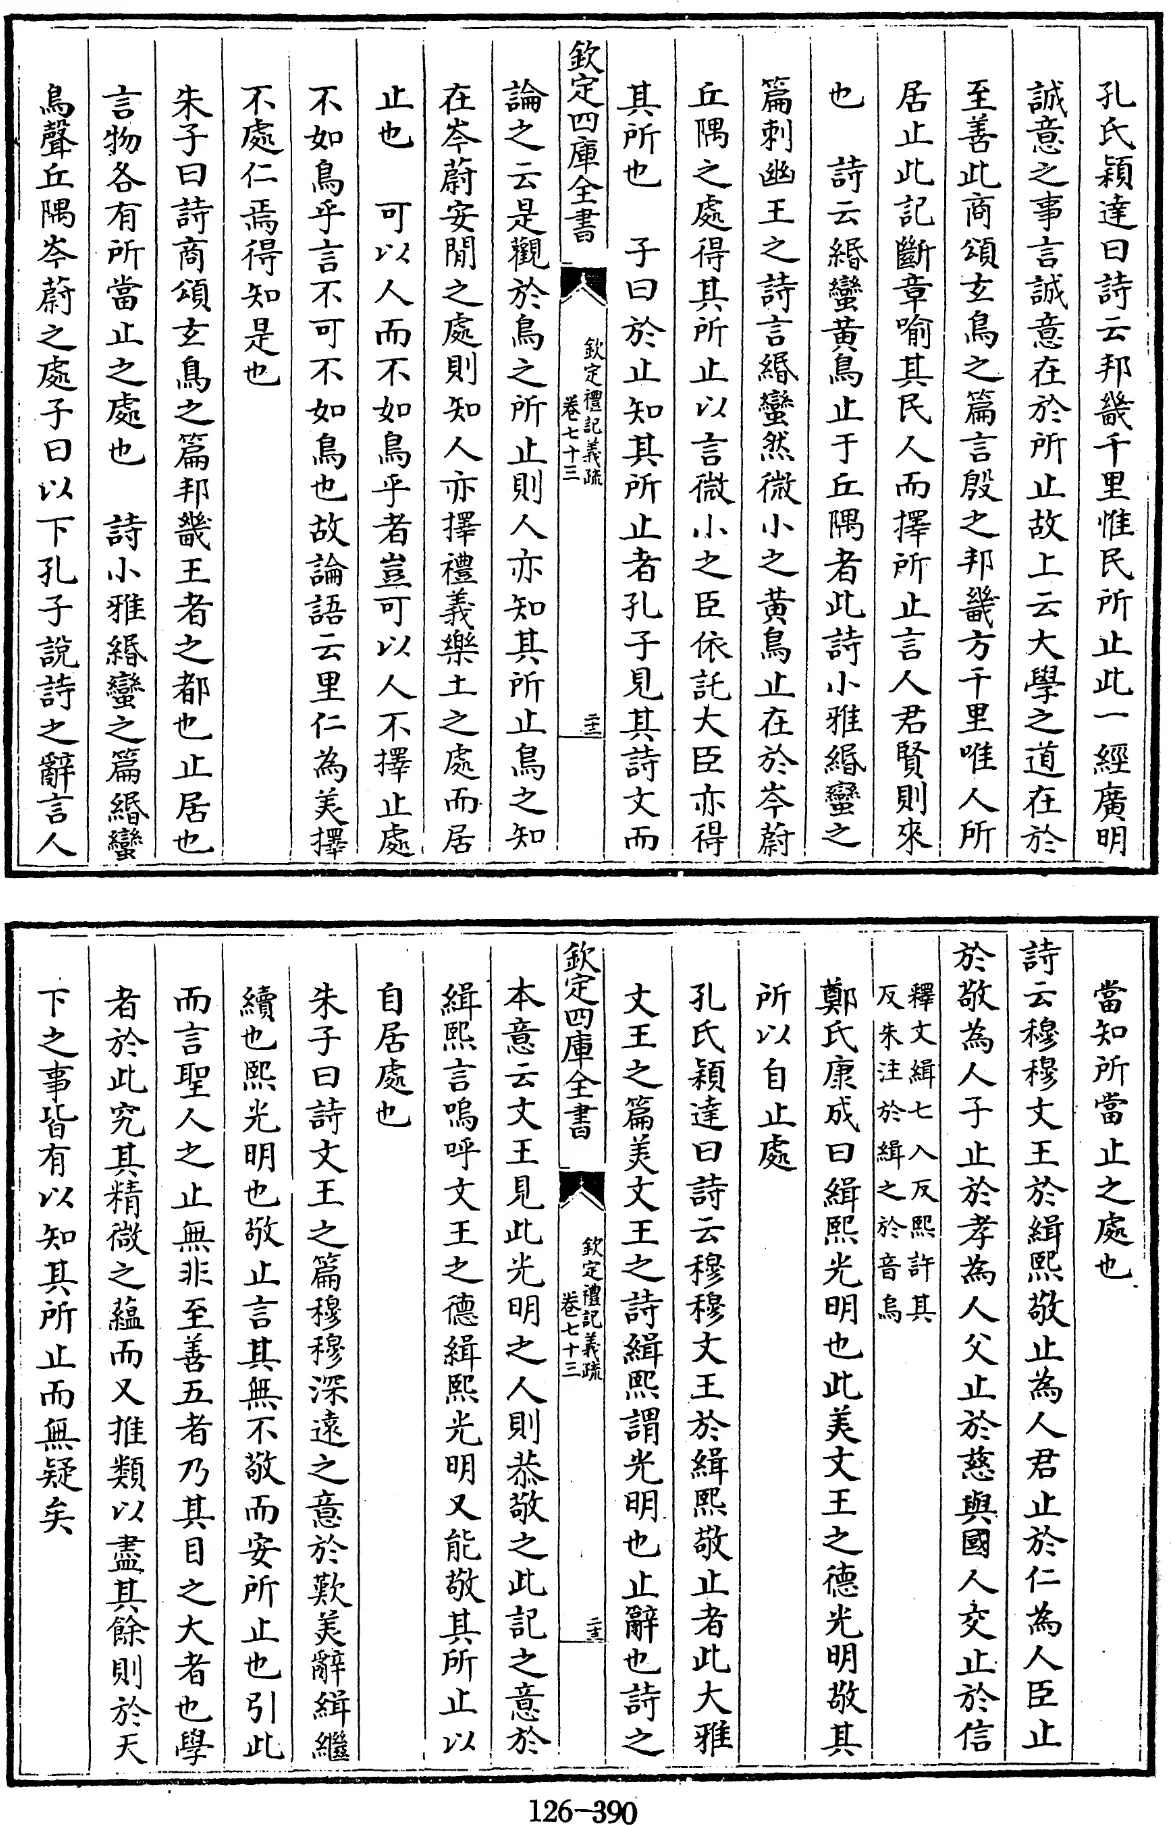 孔氏穎達曰詩云邦畿千里惟民所止此一經廣明
誠意之事言誠意在於所止故上云大學之道在於
至善此商頌玄鳥之篇言殷之邦畿方千里唯人所
居止此記斷章喻其民人而擇所止言人君賢則來
也　詩云緡蠻黃鳥止于丘隅者此詩小雅緡蠻之
篇刺幽王之詩言緡蠻然微小之黃鳥止在於岑蔚
丘隅之處得其所止以言微小之臣依託大臣亦得
其所也　子曰於止知其所止者孔子見其詩文而
欽定四庫全書
欽定禮記義疏
卷七十三
二十二
論之云是觀於鳥之所止則人亦知其所止鳥之知
在岑蔚安閒之處則知人亦擇禮義樂土之處而居
止也　可以人而不如鳥乎者豈可以人不擇止處
不如鳥乎言不可不如鳥也故論語云里仁為美擇
不處仁焉得知是也
朱子曰詩商頌玄鳥之篇邦畿王者之都也止居也
言物各有所當止之處也　詩小雅緡蠻之篇緡蠻
鳥聲丘隅岑蔚之處子曰以下孔子說詩之辭言人
當知所當止之處也
詩云穆穆文王於緝熙敬止為人君止於仁為人臣止
於敬為人子止於孝為人父止於慈與國人交止於信
釋文緝七入反熙許其
反朱注於緝之於音烏
鄭氏康成曰緝熙光明也此美文王之德光明敬其
所以自止處
孔氏穎達曰詩云穆穆文王於緝熙敬止者此大雅
文王之篇美文王之詩緝熙謂光明也止辭也詩之
欽定四庫全書
欽定禮記義疏
卷七十三
二十三
本意云文王見此光明之人則恭敬之此記之意於
緝熙言嗚呼文王之德緝熙光明又能敬其所止以
自居處也
朱子曰詩文王之篇穆穆深遠之意於歎美辭緝繼
續也熙光明也敬止言其無不敬而安所止也引此
而言聖人之止無非至善五者乃其目之大者也學
者於此究其精微之蘊而又推類以盡其餘則於天
下之事皆有以知其所止而無疑矣
126-390